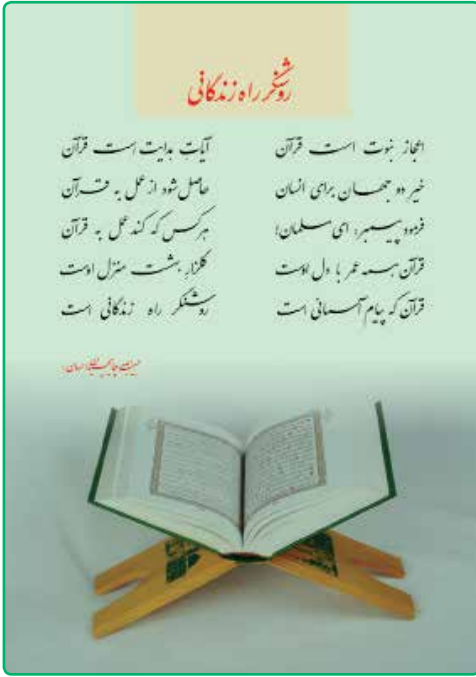 روشنگر راه زندگانی
اعجاز نبوت است قرآن آیات هدایت است قرآن
خیر دو جهان برای انسان حاصل شود از عمل به قرآن
فرمود پیمبر: ای مسلمان! هرکس که کند عمل به قرآن
قرآن همه عمر با دل اوست گلزار بهشت منزل اوست
قرآن که پیام آسمانی است روشنگر راه زندگانی است